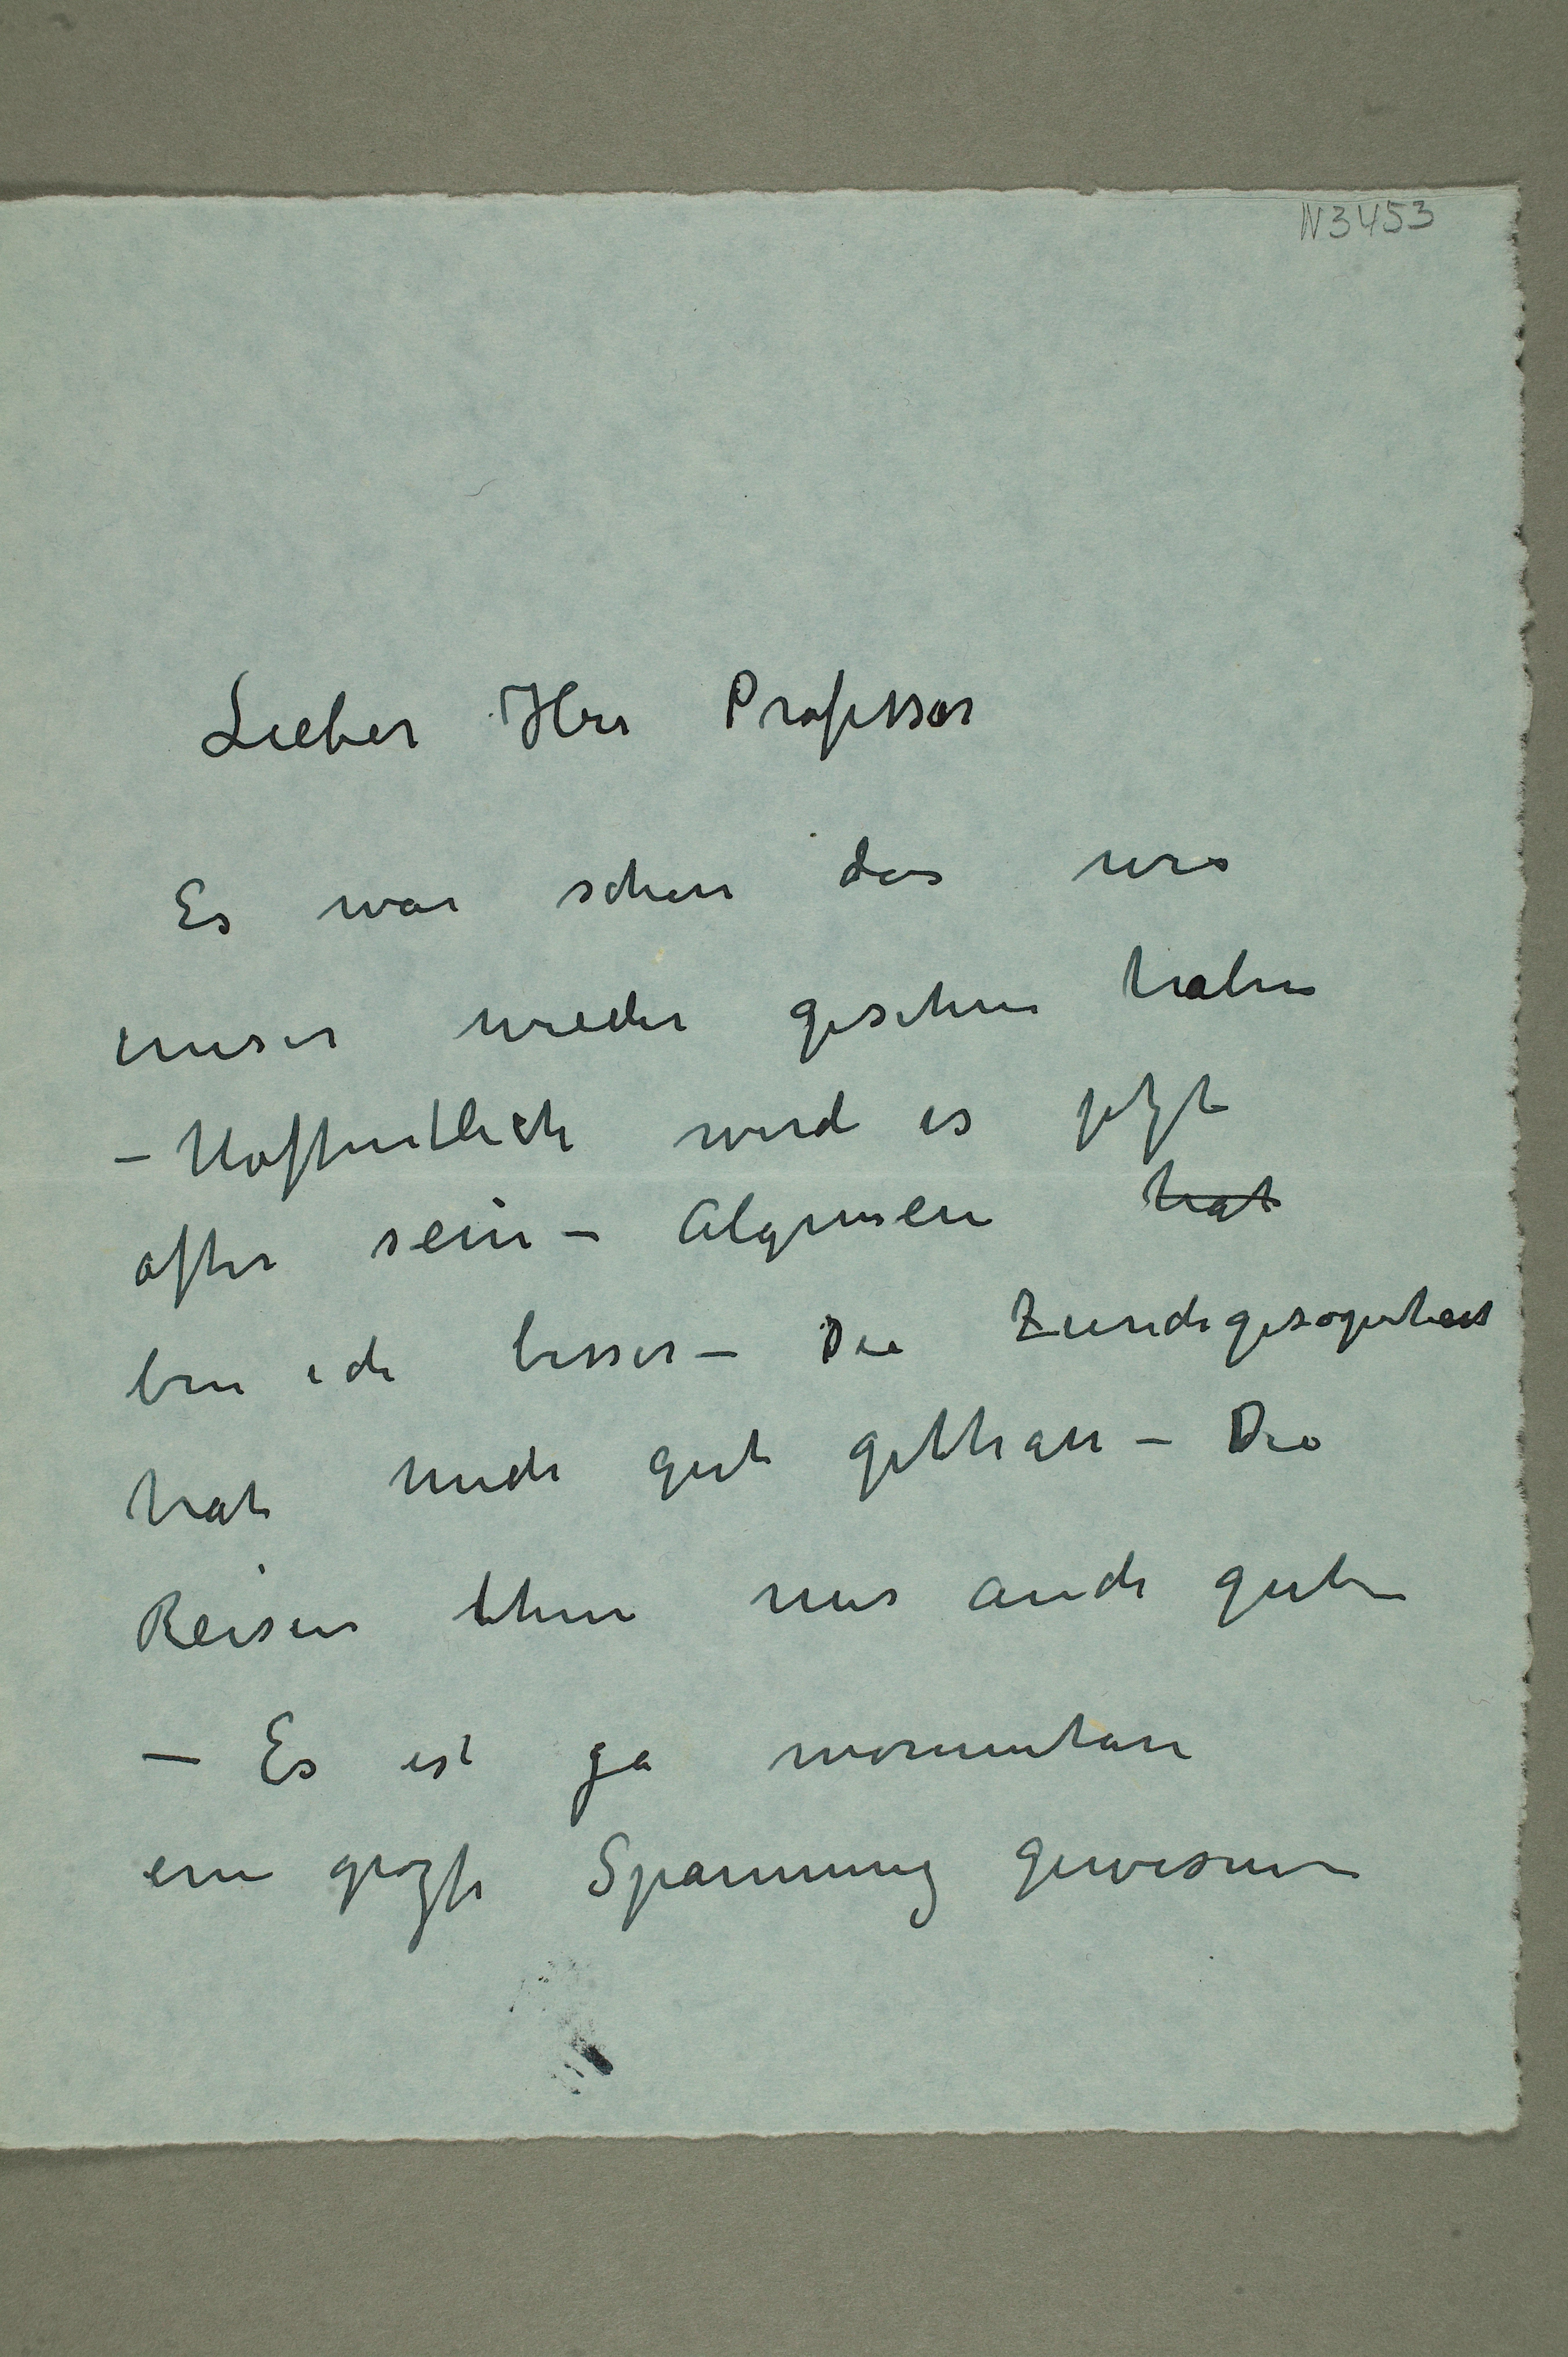 N3453
Lieber Herr Professor
Es war schön das wir
unser wieder gesehen haben
– Hoffentlich wird es jetzt
öfter sein – Algemein hat
bin ich besser – Die
hat mich gut gethan – Die
Reisen thun mir auch guth
– Es ist ja momentan
ein grozse Spannung gewesen